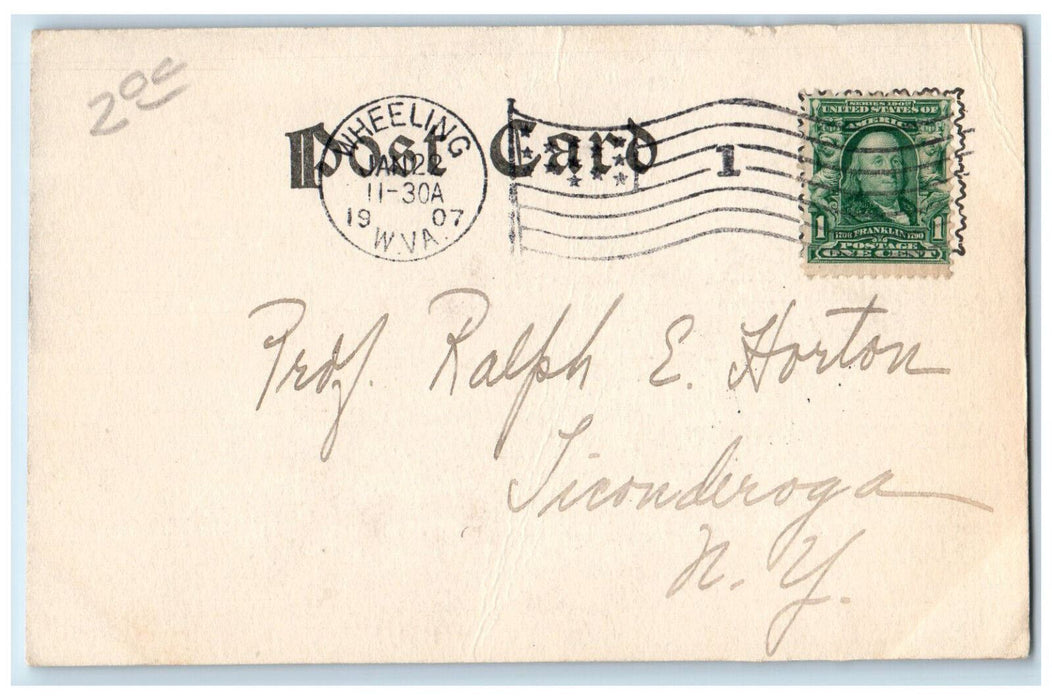 200
Post Card
WHEELING
JAN 22
11-30A
1907
W.VA.
1
SERIES 1902
UNITED STATES OF
AMERICA
1706 FRANKLIN 1790
1 POSTAGE 1
ONE CENT
Prof. Ralph E. Horton
Ticonderoga
N. Y.